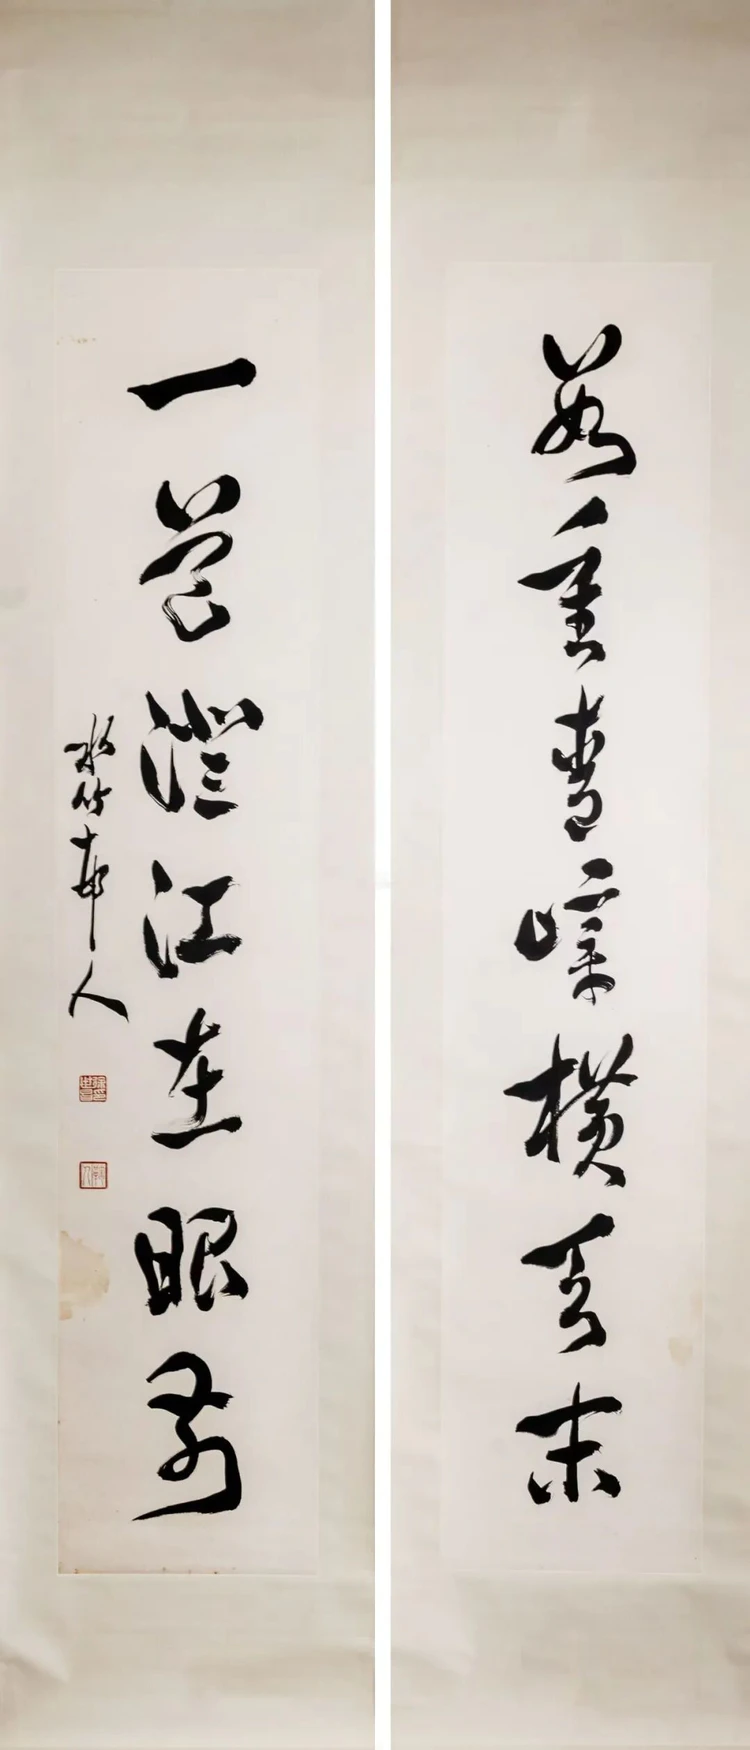 數重青嶂橫天末
一道澄江在眼前
水竹邨人